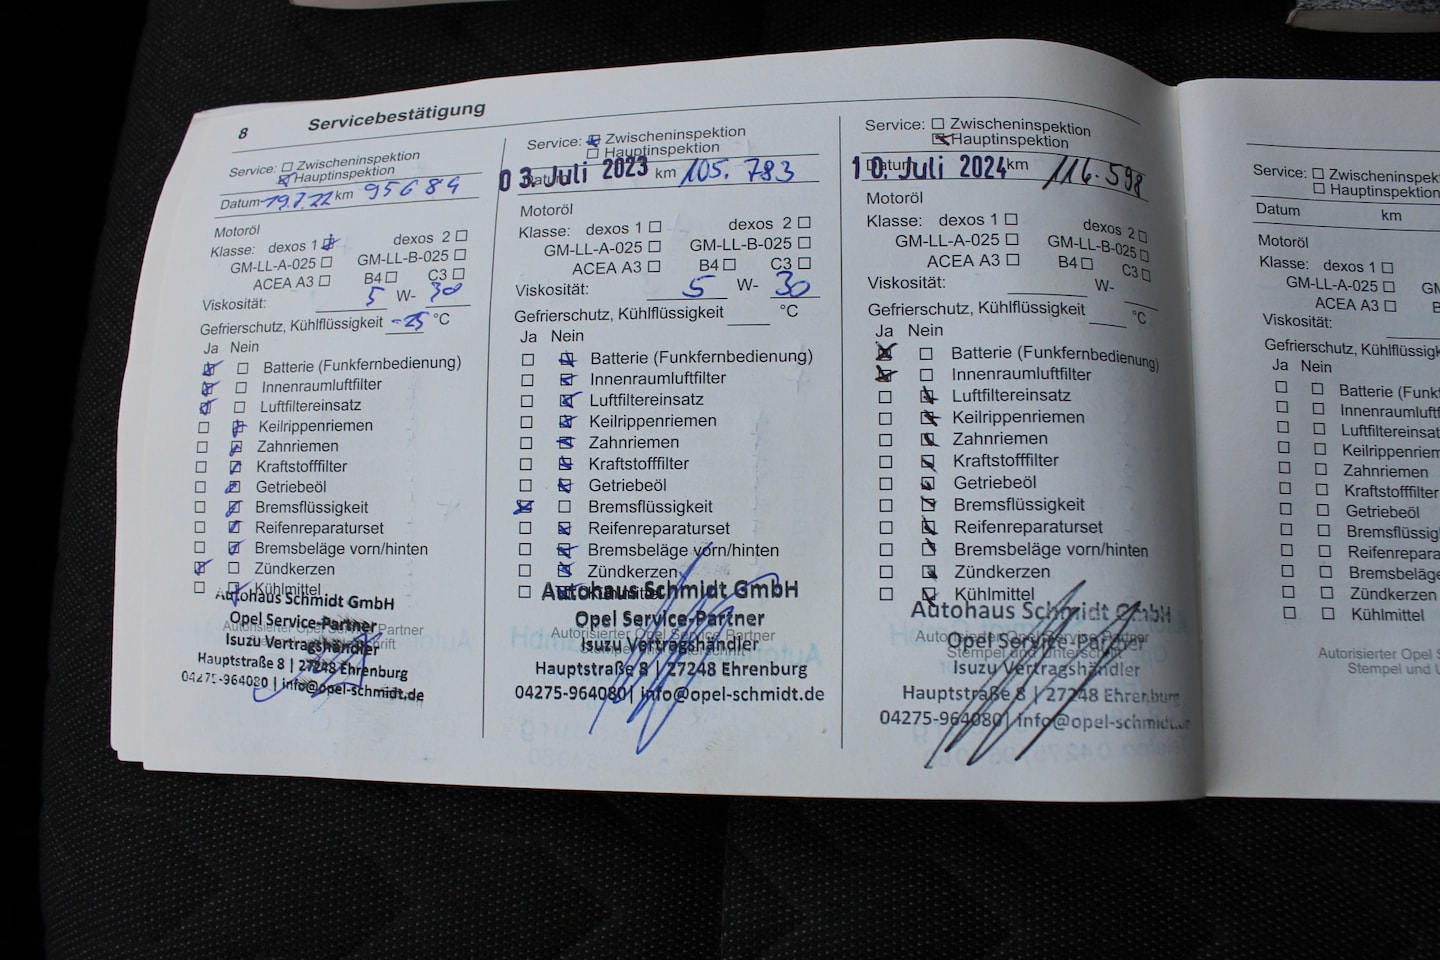 8 Servicebestätigung
Service: Zwischeninspektion
Hauptinspektion
Datum 19.7.22 km 95684
Motoröl
Klasse: dexos 1 dexos 2
GM-LL-A-025 GM-LL-B-025
ACEA A3 B4 C3
Viskosität: 5 W- 30
Gefrierschutz, Kühlflüssigkeit -25 °C
Ja Nein
Batterie (Funkfernbedienung)
Innenraumluftfilter
Luftfiltereinsatz
Keilrippenriemen
Zahnriemen
Kraftstofffilter
Getriebeöl
Bremsflüssigkeit
Reifenreparaturset
Bremsbeläge vorn/hinten
Zündkerzen
Kühlmittel
Autohaus Schmidt GmbH
Opel Service-Partner
Autorisierter Opel Service Partner
Isuzu Vertragshändler
Hauptstraße 8 | 27248 Ehrenburg
04275-964080 | info@opel-schmidt.de
Service: Zwischeninspektion
Hauptinspektion
03. Juli 2023 km 105.783
Motoröl
Klasse: dexos 1 dexos 2
GM-LL-A-025 GM-LL-B-025
ACEA A3 B4 C3
Viskosität: 5 W- 30
Gefrierschutz, Kühlflüssigkeit °C
Ja Nein
Batterie (Funkfernbedienung)
Innenraumluftfilter
Luftfiltereinsatz
Keilrippenriemen
Zahnriemen
Kraftstofffilter
Getriebeöl
Bremsflüssigkeit
Reifenreparaturset
Bremsbeläge vorn/hinten
Zündkerzen
Kühlmittel
Autohaus Schmidt GmbH
Opel Service-Partner
Autorisierter Opel Service Partner
Isuzu Vertragshändler
Hauptstraße 8 | 27248 Ehrenburg
04275-964080 | info@opel-schmidt.de
Service: Zwischeninspektion
Hauptinspektion
Datum 10. Juli 2024 km 116.598
Motoröl
Klasse: dexos 1 dexos 2
GM-LL-A-025 GM-LL-B-025
ACEA A3 B4 C3
Viskosität: W-
Gefrierschutz, Kühlflüssigkeit °C
Ja Nein
Batterie (Funkfernbedienung)
Innenraumluftfilter
Luftfiltereinsatz
Keilrippenriemen
Zahnriemen
Kraftstofffilter
Getriebeöl
Bremsflüssigkeit
Reifenreparaturset
Bremsbeläge vorn/hinten
Zündkerzen
Kühlmittel
Autohaus Schmidt GmbH
Autorisierter Opel Service Partner
Opel Service-Partner
Stempel und Unterschrift
Isuzu Vertragshändler
Hauptstraße 8 | 27248 Ehrenburg
04275-964080 | info@opel-schmidt.de
Service: Zwischeninspek
Hauptinspektion
Datum km
Motoröl
Klasse: dexos 1
GM-LL-A-025 GM
ACEA A3
Viskosität:
Gefrierschutz, Kühlflüssigk
Ja Nein
Batterie (Funkf
Innenraumluftf
Luftfiltereinsat
Keilrippenriem
Zahnriemen
Kraftstofffilter
Getriebeöl
Bremsflüssig
Reifenrepara
Bremsbeläge
Zündkerzen
Kühlmittel
Autorisierter Opel S
Stempel und U